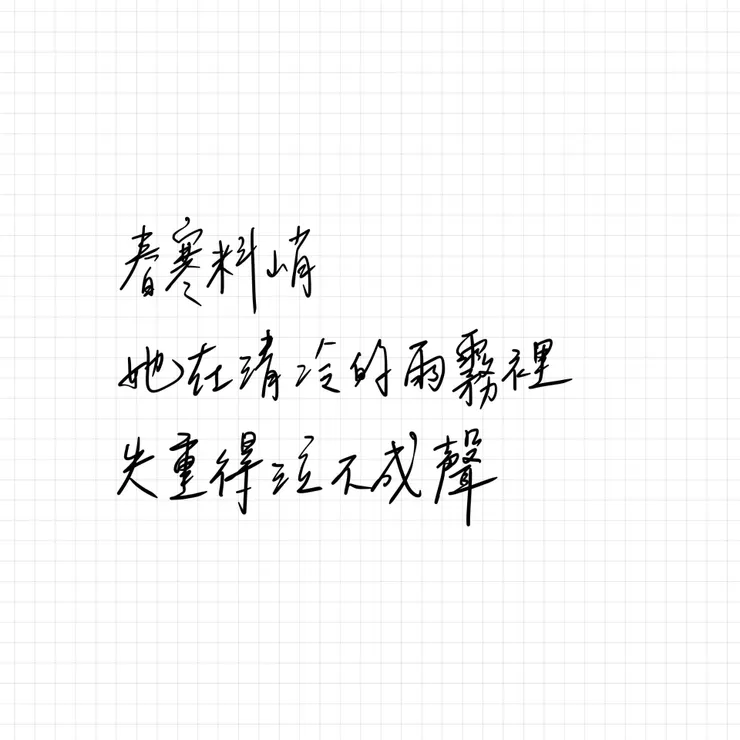 春寒料峭
她在清冷的雨霧裡
失重得泣不成聲